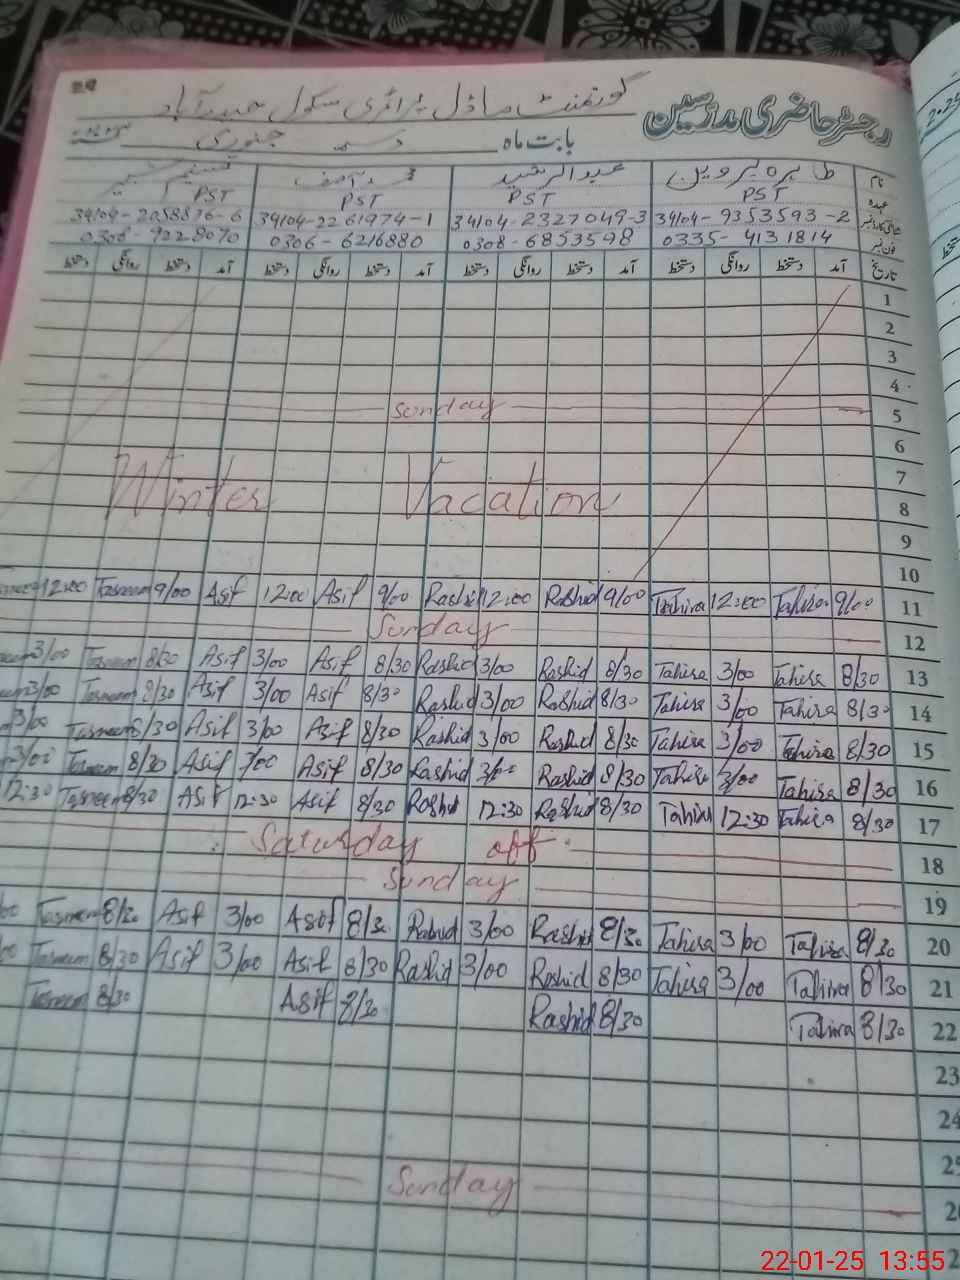 رجسٹر حاضری مدرسین گورنمنٹ ماڈل پرائمری سکول حیدرآباد
بابت ماہ جنوری
نام طاہرہ پروین عبدالرشید محمد آصف
عہدہ PST PST PST PST
34104-9353593-2 34104-2327049-3 34104-2261974-1 34104-2058876-6
فون نمبر 0335-4131814 0308-6853598 0306-6216880 0306-9228070
تاریخ آمد دستخط روانگی دستخط آمد دستخط روانگی دستخط آمد دستخط روانگی دستخط آمد دستخط روانگی دستخط
1
2
3
4
5 Sunday
6
7
Winter Vacation 8
9
10
12:00 Tasneem 9/00 Asif 12:00 Asif 9/00 Rashid 12:00 Rashid 9/00 Tahira 12:00 Tahira 9/00 11
Sunday 12
3/00 Tasneem 8/30 Asif 3/00 Asif 8/30 Rashid 3/00 Rashid 8/30 Tahira 3/00 Tahira 8/30 13
3/00 Tasneem 8/30 Asif 3/00 Asif 8/30 Rashid 3/00 Rashid 8/30 Tahira 3/00 Tahira 8/30 14
3/00 Tasneem 8/30 Asif 3/00 Asif 8/30 Rashid 3/00 Rashid 8/30 Tahira 3/00 Tahira 8/30 15
3/00 Tasneem 8/30 Asif 3/00 Asif 8/30 Rashid 3/00 Rashid 8/30 Tahira 3/00 Tahira 8/30 16
12:30 Tasneem 8/30 Asif 12:30 Asif 8/30 Rashid 12:30 Rashid 8/30 Tahira 12:30 Tahira 8/30 17
Saturday off 18
Sunday 19
Tasneem 8/30 Asif 3/00 Asif 8/30 Rashid 3/00 Rashid 8/30 Tahira 3/00 Tahira 8/30 20
Tasneem 8/30 Asif 3/00 Asif 8/30 Rashid 3/00 Rashid 8/30 Tahira 3/00 Tahira 8/30 21
Tasneem 8/30 Asif 8/30 Rashid 8/30 Tahira 8/30 22
23
24
25
Sunday
22-01-25 13:55